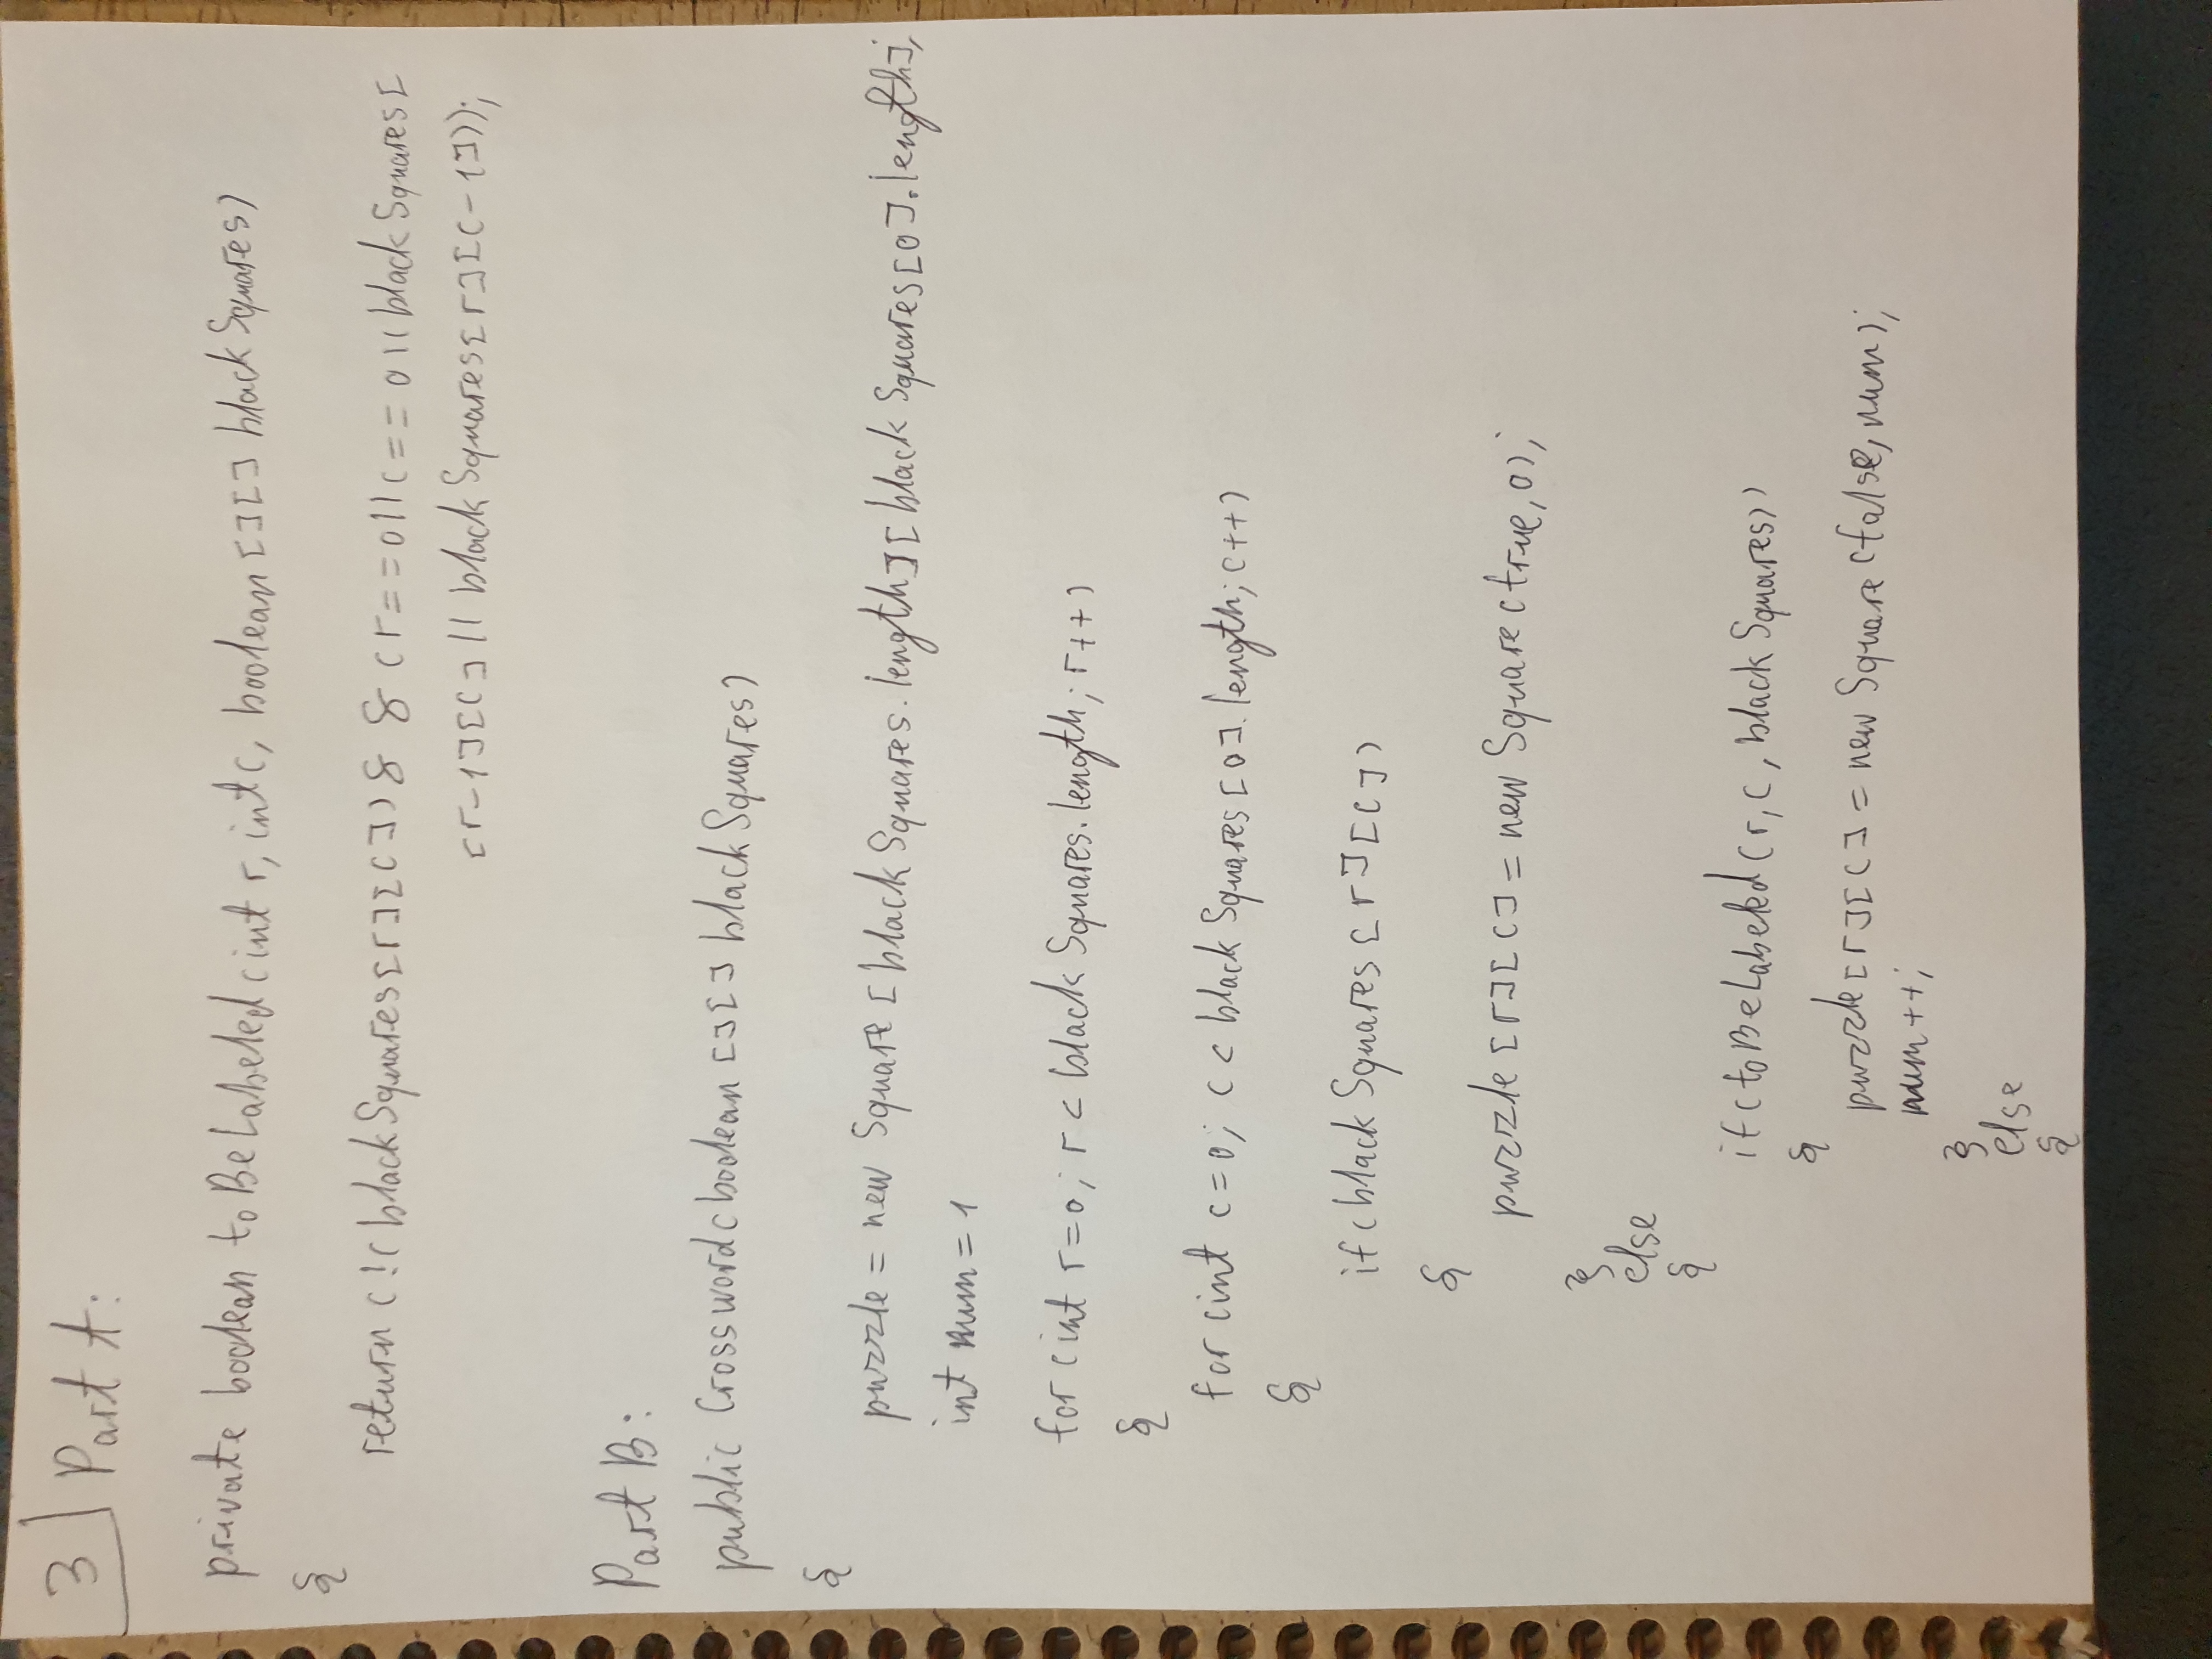 3 Part A:
private boolean toBeLabeled (int r, int c, boolean [][] blackSquares)
{
return (!(blackSquares[r][c]) & & (r==0||c==0||blackSquares[
[r-1][c] || blackSquares[r][c-1]));
Part B:
public Crossword (boolean [][] blackSquares)
{
puzzle = new Square [blackSquares.length][blackSquares[0].length];
int num = 1
for (int r=0; r < blackSquares.length; r++)
{
for (int c=0; c < blackSquares[0].length; c++)
{
if (blackSquares[r][c])
{
puzzle [r][c] = new Square (true, 0);
}
else
{
if (toBeLabeled (r, c, blackSquares))
{
puzzle[r][c] = new Square (false, num);
num++;
}
else
{